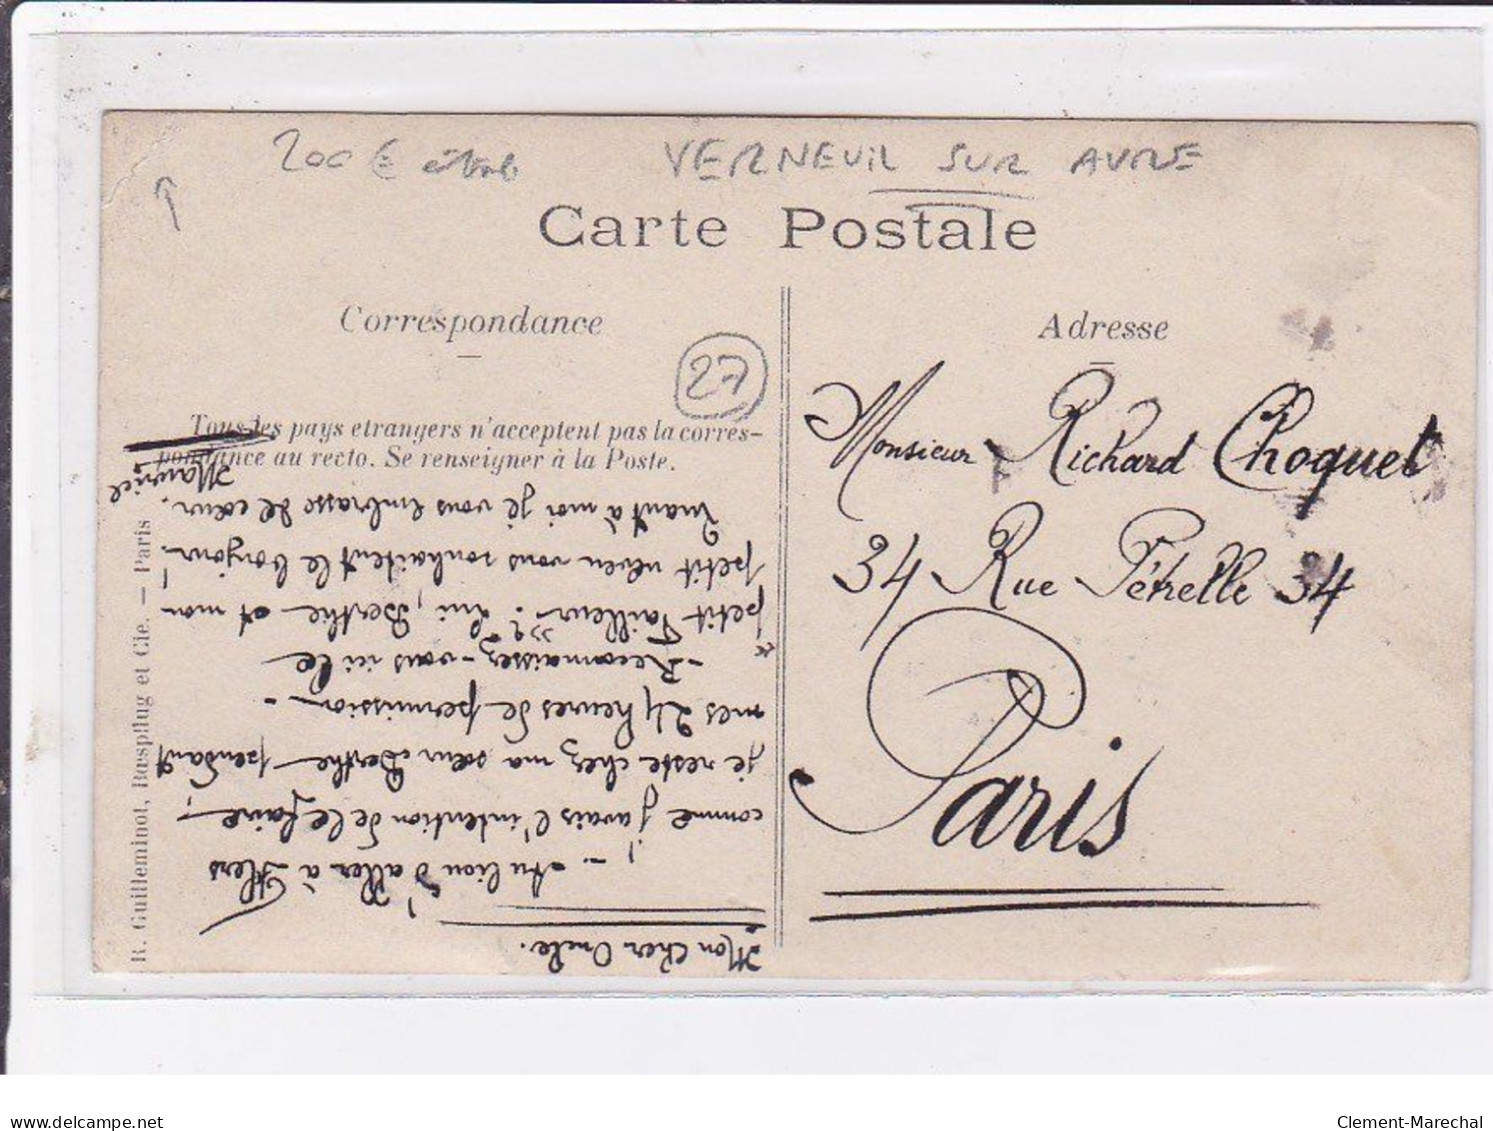 200 €
VERNEUIL SUR AVRE
Carte Postale
Correspondance
Adresse
27
Tous les pays etrangers n'acceptent pas la corres-
pondance au recto. Se renseigner à la Poste.
Monsieur Richard Choquet
34 Rue Pétrelle 34
Paris
Mon Cher Oncle.
- Au lieu d'aller à Flers
comme j'avais l'intention de le faire,
je reste chez ma sœur Berthe pendant
mes 24 heures de permission -
- Reconnaissez-vous ici le
petit Tailleur? Lui, Berthe et mon
petit neveu vous souhaitent le bonjour!
Quant à moi je vous embrasse de cœur.
Maurice
R. Guilleminot, Bœspflug et Cie. — Paris
delcampe.net
Clement-Marechal